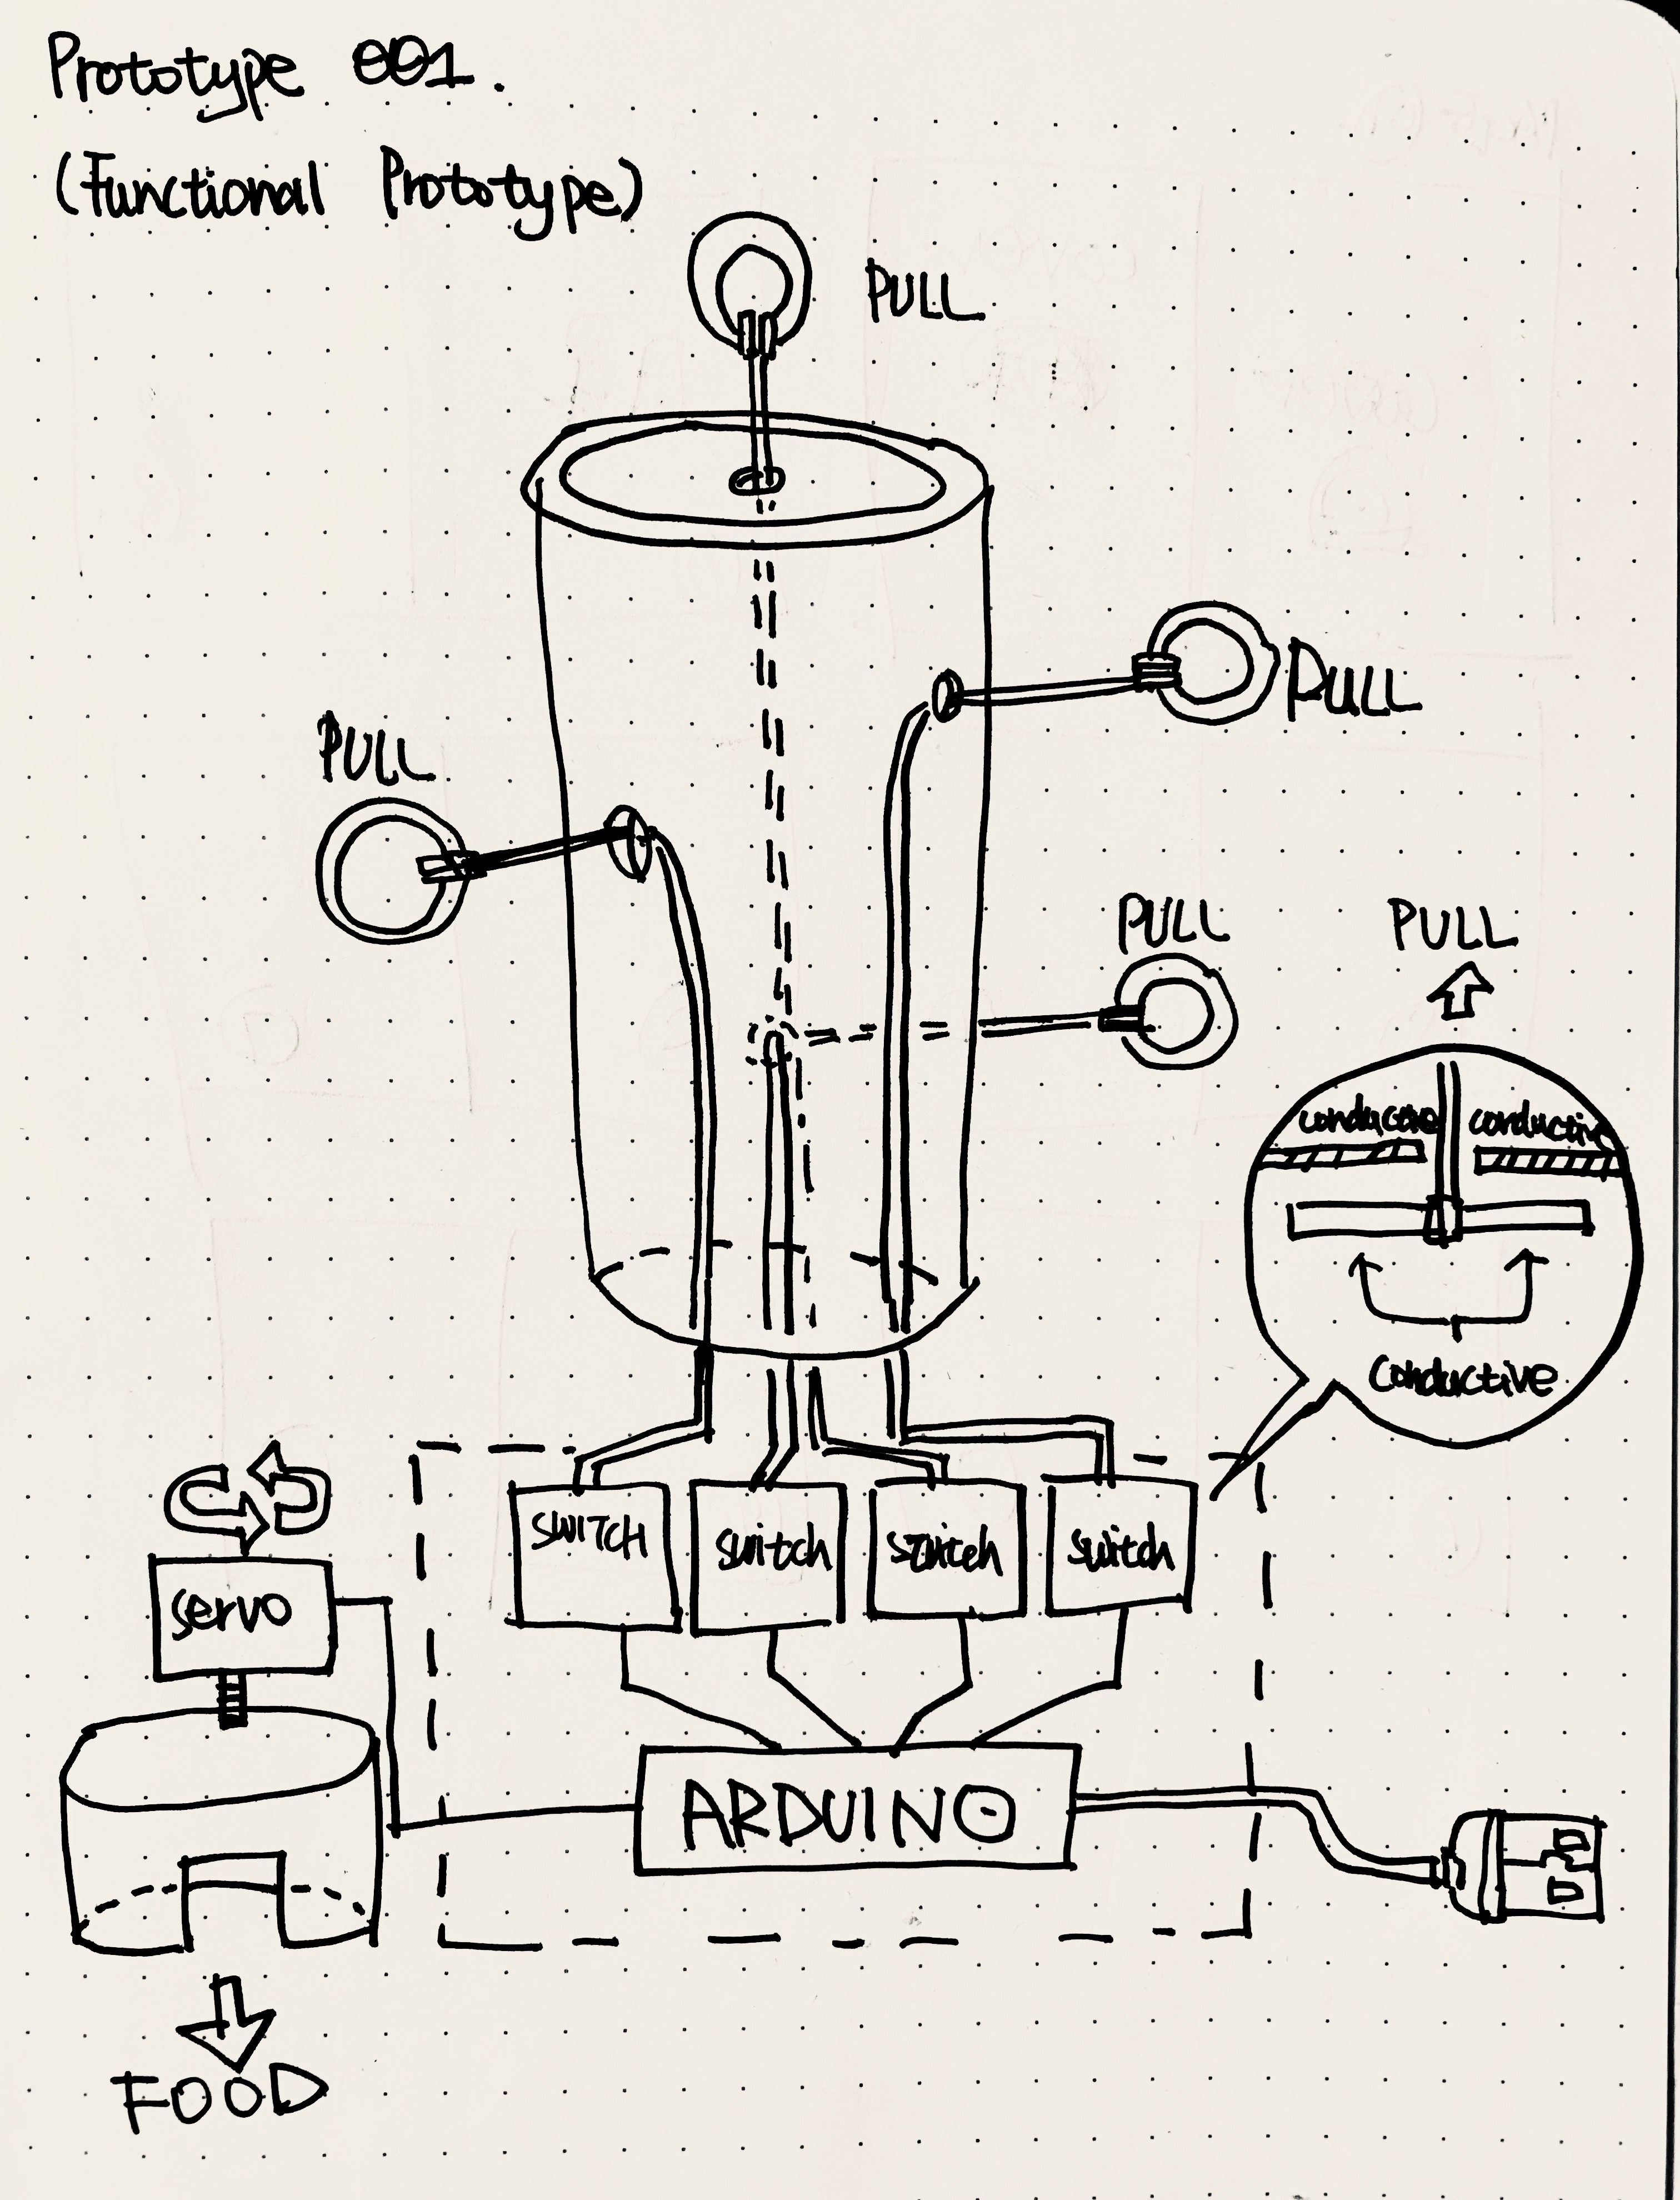 Prototype 001.
(Functional Prototype)
PULL
PULL
PULL
PULL
PULL
conductive conductive
conductive
servo
SWITCH switch switch switch
ARDUINO
FOOD